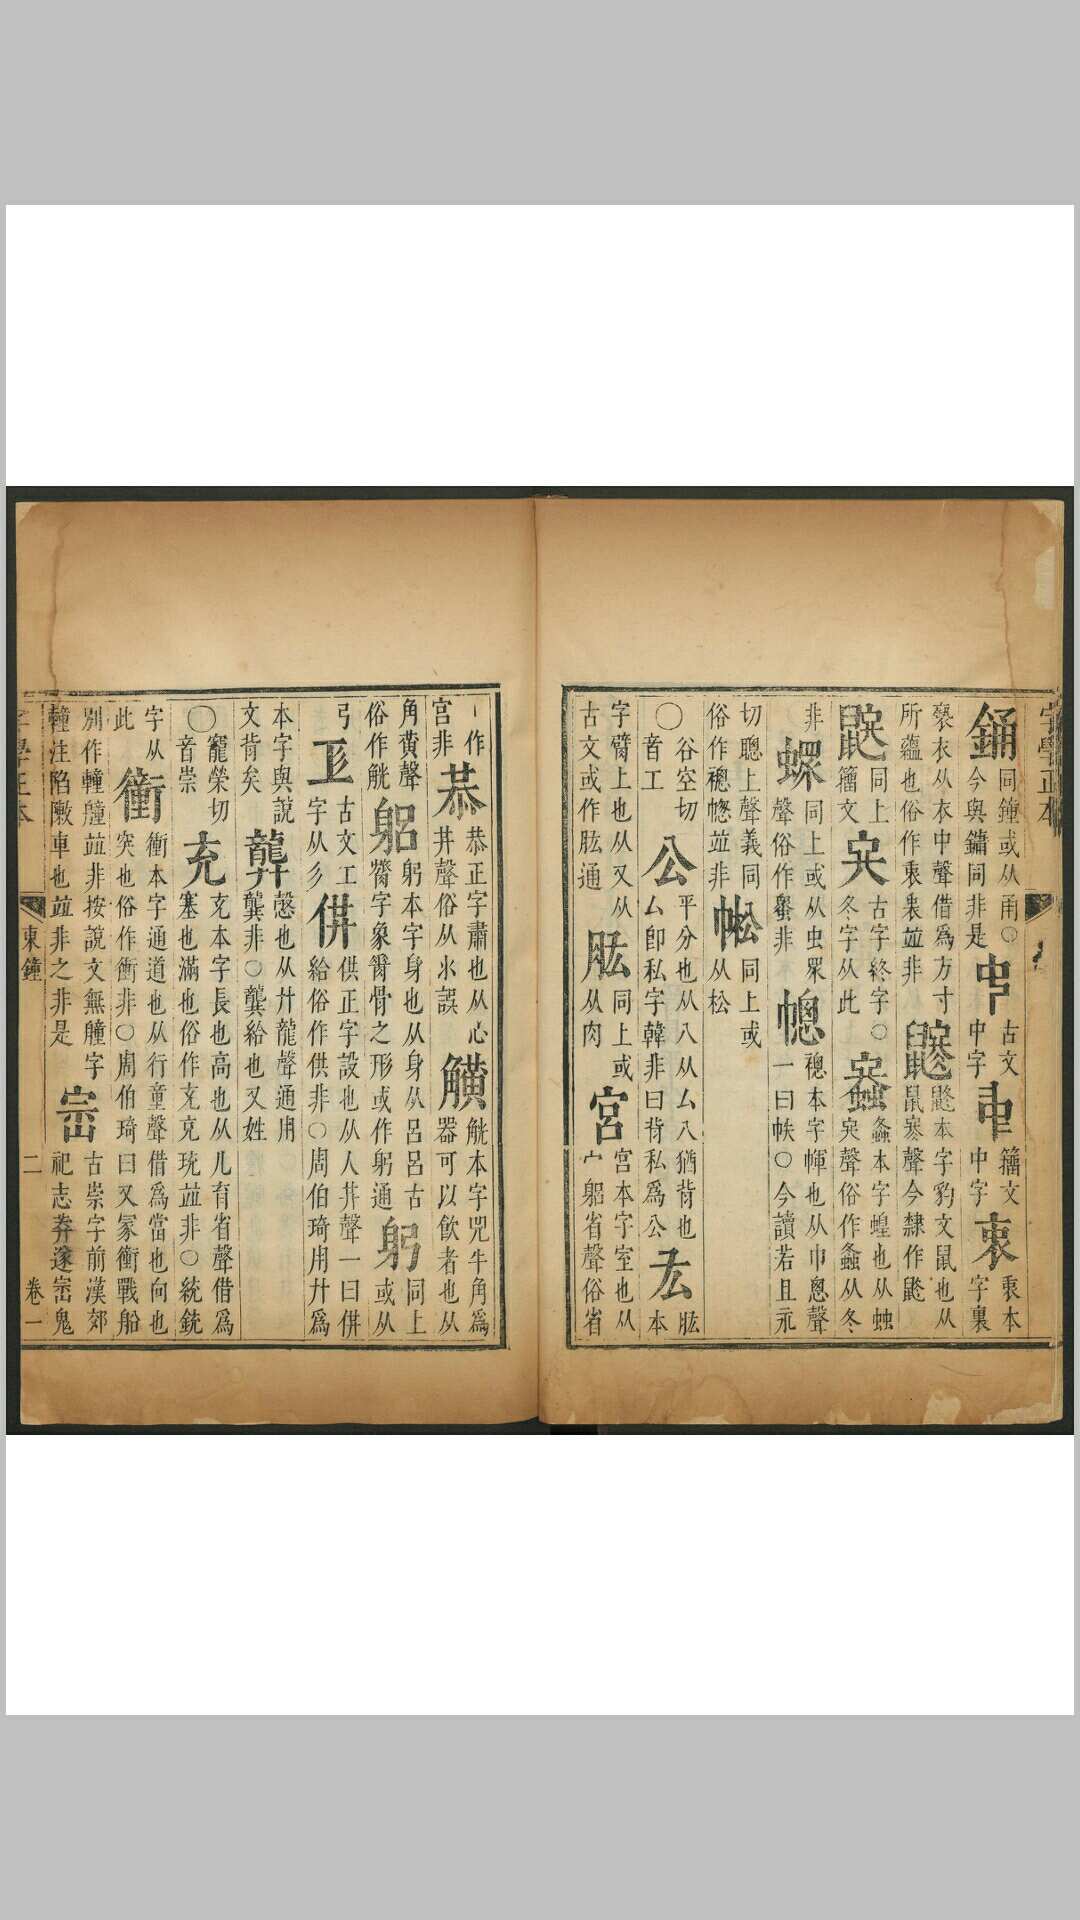 字學正本
銿同鐘或从甬○今與鏞同非是𠁧古文中字𠁩籀文中字衷衷本字裏
褻衣从衣中聲借為方寸所蘊也俗作並非鼨鼨本字豹文鼠也从鼠聲今隸作鼨
同上籀文古字終字○冬字从此螽本字蝗也从䖵聲俗作螽从冬
非䗥同上或从虫眾聲俗作非幒幒本字幝也从巾悤聲一曰帙○今讀若且永
切聰上聲義同俗作並非㡆同上或从松
○谷空切音工公平分也从八从厶八猶背也厶卽私字韓非曰背私為公厷肱本
字臂上也从又从古文或作肱通肱同上或从肉宮宮本字室也从宀躳省聲俗省
作宮非恭恭正字肅也从心聲俗从氺誤觵觥本字兕牛角為器可以飲者也从
角黃聲俗作觥躳躬本字身也从身从呂呂古膂字象脊骨之形或作躬通躬同上或从
弓古文工字从彡供供正字設也从人聲一曰供給俗作供非○周伯琦用廾為
本字與說文背矣龏愨也从廾龍聲通用龔非○龔給也又姓
○寵榮切音崇充充本字長也高也从儿育省聲借為塞也滿也俗作並非○統銃
字从此衝衝本字通道也从行童聲借為當也向也突也俗作衝非○周伯琦曰又冡衝戰船
別作䡴艟並非按說文無艟字䡴注陷敶車也並非之非是崈古崇字前漢郊祀志莽遂崈鬼
字學正本 東鐘 二 卷一